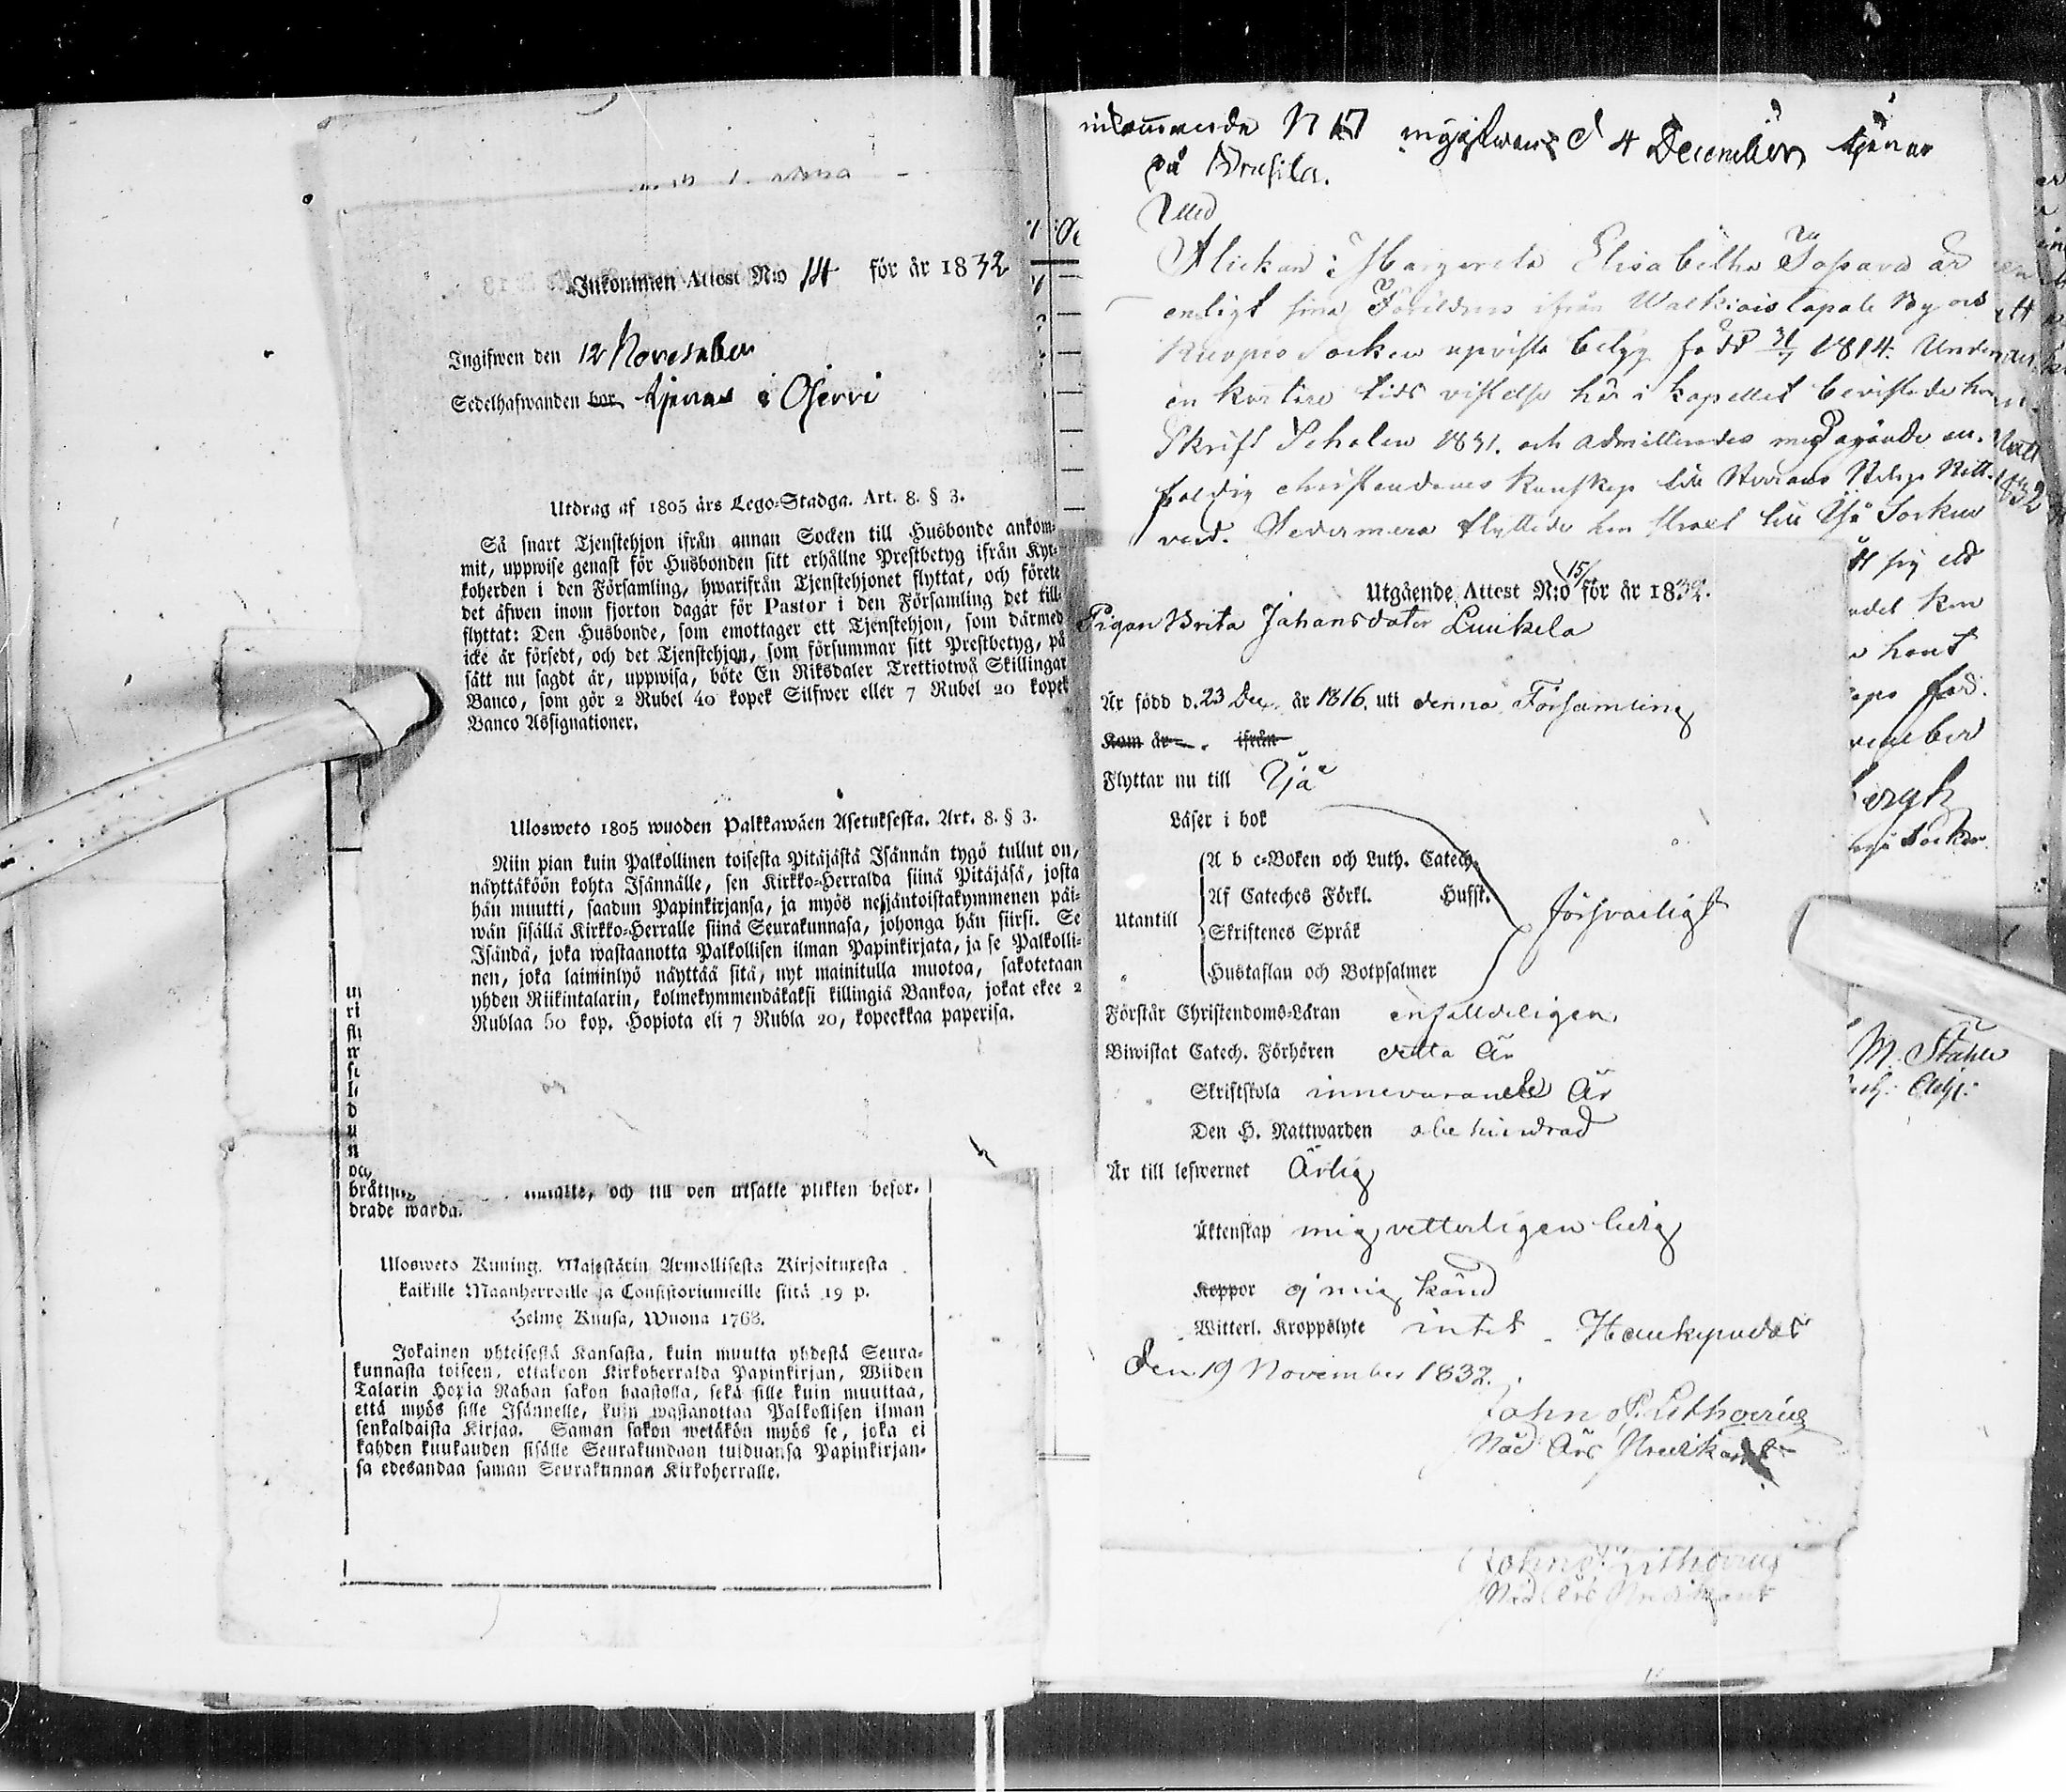 Inkommen Attest N:o 14 för år 1832
Ingifwen den 12 November
Sedelhafwanden bor tjenar i Ojervi
Utdrag af 1805 års Lego-Stadga. Art. 8. § 3.
Så snart Tjenstehjon ifrån annan Socken till Husbonde ankom-
mit, uppwise genast för Husbonden sitt erhållne Prestbetyg ifrån Kyr-
koherden i den Församling, hwarifrån Tjenstehjonet flyttat, och förete
det äfwen inom fjorton dagar för Pastor i den Församling det till-
flyttat: Den Husbonde, som emottager ett Tjenstehjon, som därmed
icke är försedt, och det Tjenstehjon, som försummar sitt Prestbetyg, på
sätt nu sagdt är, uppwisa, böte En Riksdaler Trettiotwå Skillingar
Banco, som gör 2 Rubel 40 kopek Silfwer eller 7 Rubel 20 kopek
Banco Assignationer.
Ulosweto 1805 wuoden Palkkawäen Asetuksesta. Art. 8. § 3.
Niin pian kuin Palkollinen toisesta Pitäjästä Isännän tygö tullut on,
näyttäköön kohta Isännälle, sen Kirkko-Herralda siinä Pitäjäsä, josta
hän muutti, saadun Papinkirjansa, ja myös neljäntoistakymmenen päi-
wän sisällä Kirkko-Herralle siinä Seurakunnasa, johonga hän siirsi. Se
Isändä, joka wastaanotta Palkollisen ilman Papinkirjata, ja se Palkolli-
nen, joka laiminlyö näyttää sitä, nyt mainitulla muotoa, sakotetaan
yhden Riikintalarin, kolmekymmendäkaksi killingiä Bankoa, jokat ekee 2
Rublaa 50 kop. Hopiota eli 7 Rubla 20, kopeekkaa paperisa.
och till den utsatte plikten befor-
drade warda.
Ulosweto Kuning. Majestätin Armollisesta Kirjoituxesta
kaikille Maanherroille ja Consistoriumeille siitä 19 p.
Helme Kuusa, Wuona 1768.
Jokainen yhteisestä Kansasta, kuin muutta yhdestä Seura-
kunnasta toiseen, ottakoon Kirkoherralda Papinkirjan, Wiiden
Talarin Hopia Rahan sakon haastolla, sekä sille kuin muuttaa,
että myös sille Isännelle, kuin wastanottaa Palkollisen ilman
senkaldaista Kirjaa. Saman sakon wetäkön myös se, joka ei
kahden kuukauden sisälle Seurakundaan tulduansa Papinkirjan-
sa edesandaa saman Seurakunnan Kirkoherralle.
inkommande N 17 ingifwen d 4 December tjenar
på Brusila.
Flickan Margareta Elisabetha är
enligt sina Föräldrars ifrån By och
Kuopio Socken upviste betyg född 31/7 1814. Under
en kortare tids vistelse här i kapellet bevistade hon
Skrift Scholan 1831. och admitterades med ägande en-
faldig christendoms kunskap till Herrans Helga Natt-
vard. Sedermera flyttade hon strax till Ijå Socken
Utgående Attest N:o 15 för år 1832.
Pigan Brita Johansdoter Luukela
Är född d. 23 Dec. år 1816. uti denna Församling
Kom år ifrån
Flyttar nu till Ijå
Läser i bok
A b c-Boken och Luth. Catech.
Af Cateches Förkl. Hufst.
Utantill försvarligt
Skriftenes Språk
Hustaflan och Botpsalmer
Förstår Christendoms-Läran enfalldeligen.
Biwistat Catech. Förhören detta År
Skriftskola innevarande År
Den H. Nattwarden obehindrad
Är till lefwernet Ärlig
Äktenskap mig vetterligen ledig
Koppor ej mig känd
Witterl. Kroppslyte intet Haukipudas
den 19 November 1832.
John P. Lithovius
Nåd Års Predikant
John P. Lithovius
Nåd Års Predikant
M. Ståhle